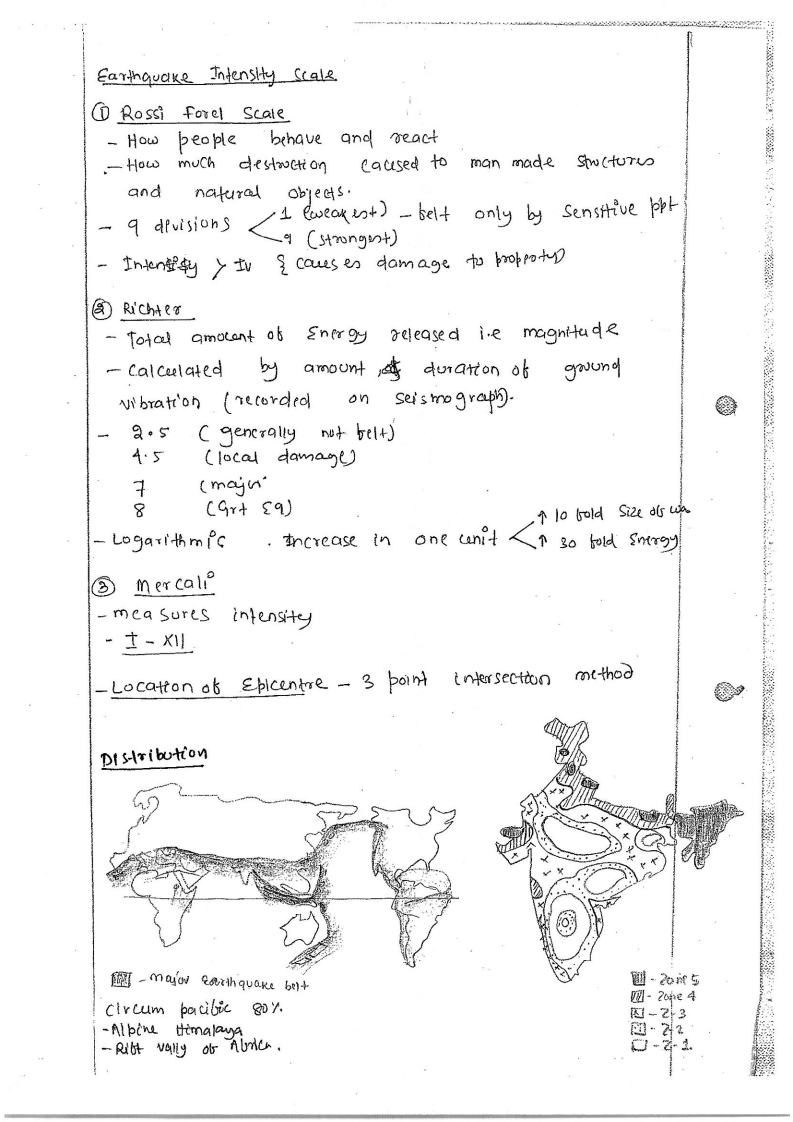 Earthquake Intensity Scale
① Rossi Forel Scale
- How people behave and react
- How much destruction caused to man made structures
and natural objects.
- 9 divisions 1 (weakest) - felt only by sensitive ppl
9 (strongest)
- Intensity > IV { causes damage to property
② Richter
- Total amount of Energy released i.e magnitude
- Calculated by amount, & duration of ground
vibration (recorded on seismograph).
- 2.5 (generally not felt)
4.5 (local damage)
7 (major
8 (Grt EQ)
- Logarithmic . Increase in one unit ↑ 10 fold Size of wa
↑ 30 fold Energy
③ Mercali
- measures intensity
- I - XII
- Location of Epicentre - 3 point intersection method
Distribution
- major earthquake belt
Circum pacific 80%
- Alpine Himalaya
- Rift vally of Africa.
- Zone 5
- Zone 4
- Z-3
- Z-2
- Z-1.